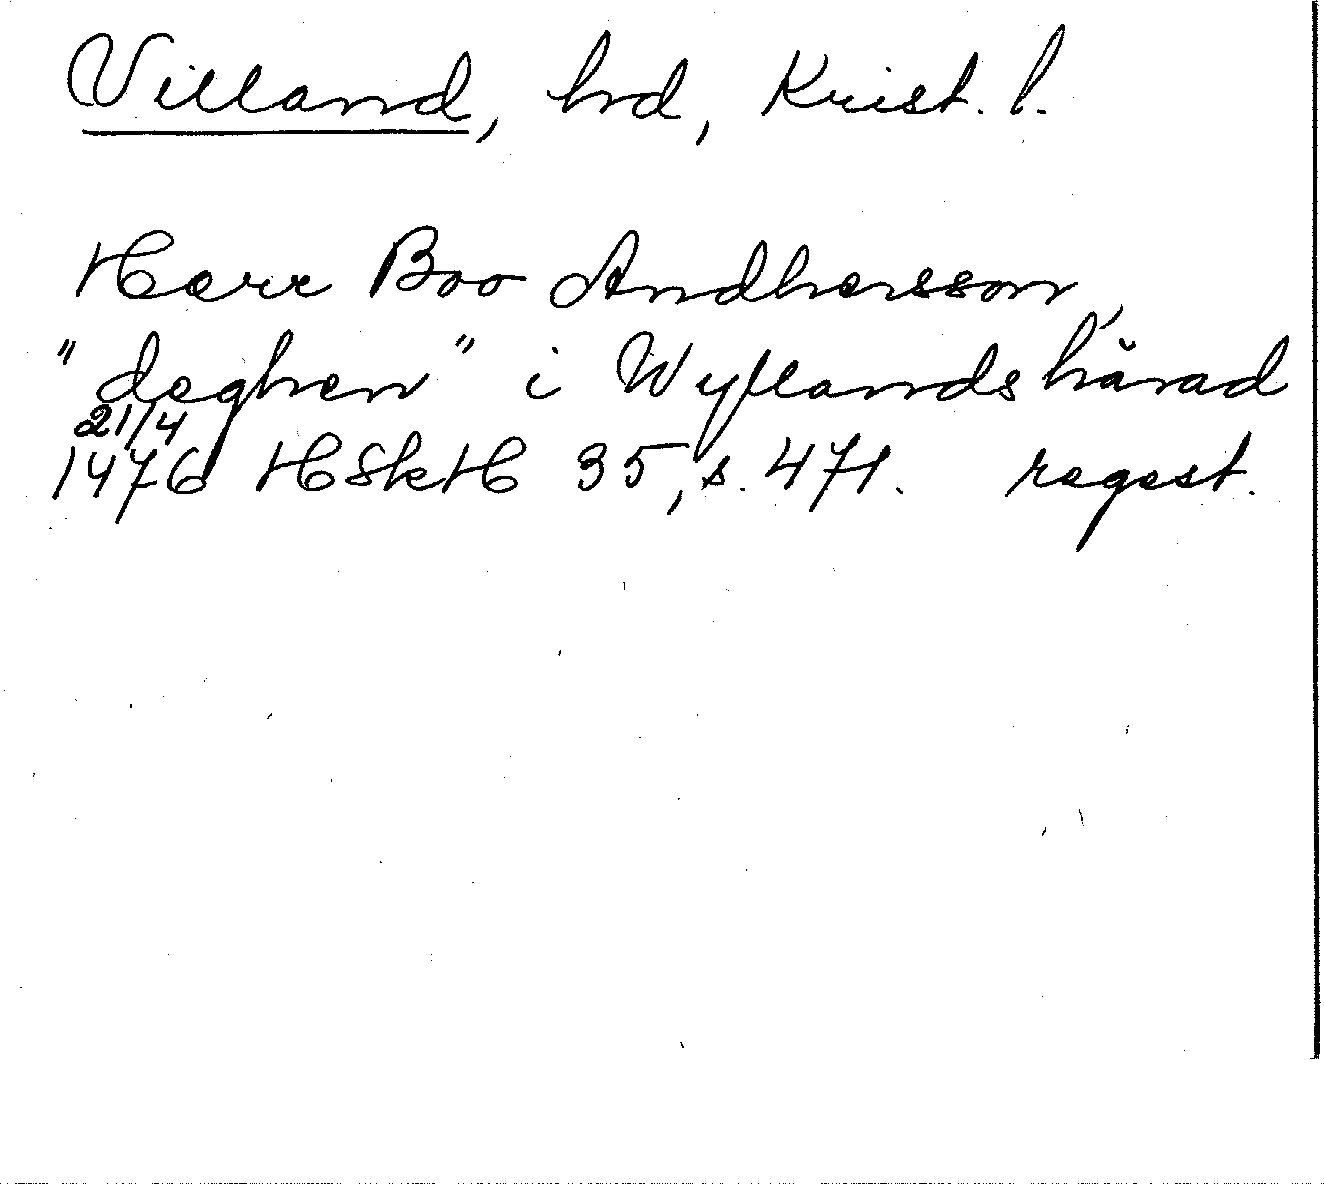 Villand, hd, Krist. l.
Herr Boo Andhersson,
"deghen" i Wyllands härad
21/4
1476 HSkH 35, s. 471. regest.